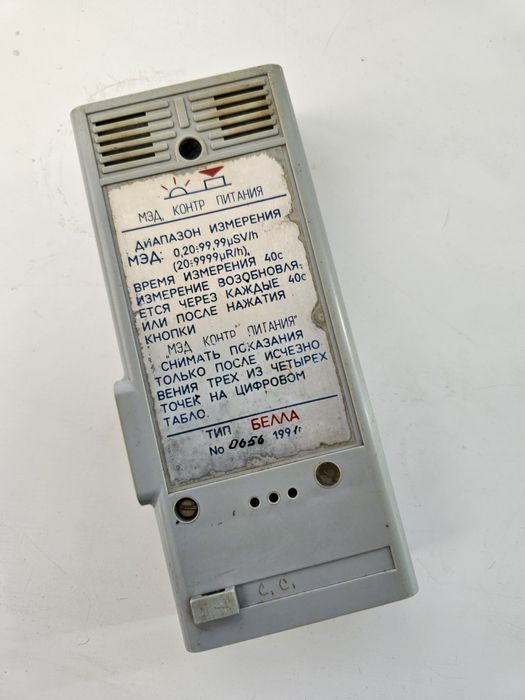 МЭД, КОНТР ПИТАНИЯ
ДИАПАЗОН ИЗМЕРЕНИЯ
МЭД: 0,20÷99,99µSV/h
(20÷9999µR/h),
ВРЕМЯ ИЗМЕРЕНИЯ 40с
ИЗМЕРЕНИЕ ВОЗОБНОВЛЯ-
ЕТСЯ ЧЕРЕЗ КАЖДЫЕ 40с
ИЛИ ПОСЛЕ НАЖАТИЯ
КНОПКИ
"МЭД КОНТР ПИТАНИЯ"
СНИМАТЬ ПОКАЗАНИЯ
ТОЛЬКО ПОСЛЕ ИСЧЕЗНО
ВЕНИЯ ТРЕХ ИЗ ЧЕТЫРЕХ
ТОЧЕК НА ЦИФРОВОМ
ТАБЛО.
ТИП БЕЛЛА
No 0656 1991г
С. С.